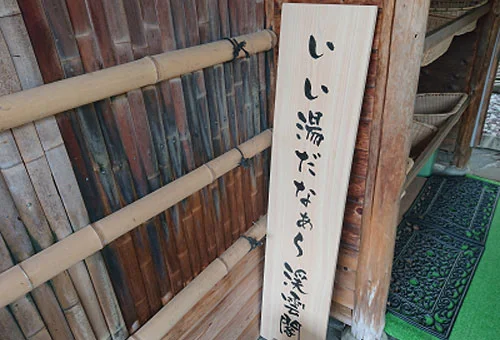 いい湯だなぁら渓雲閣